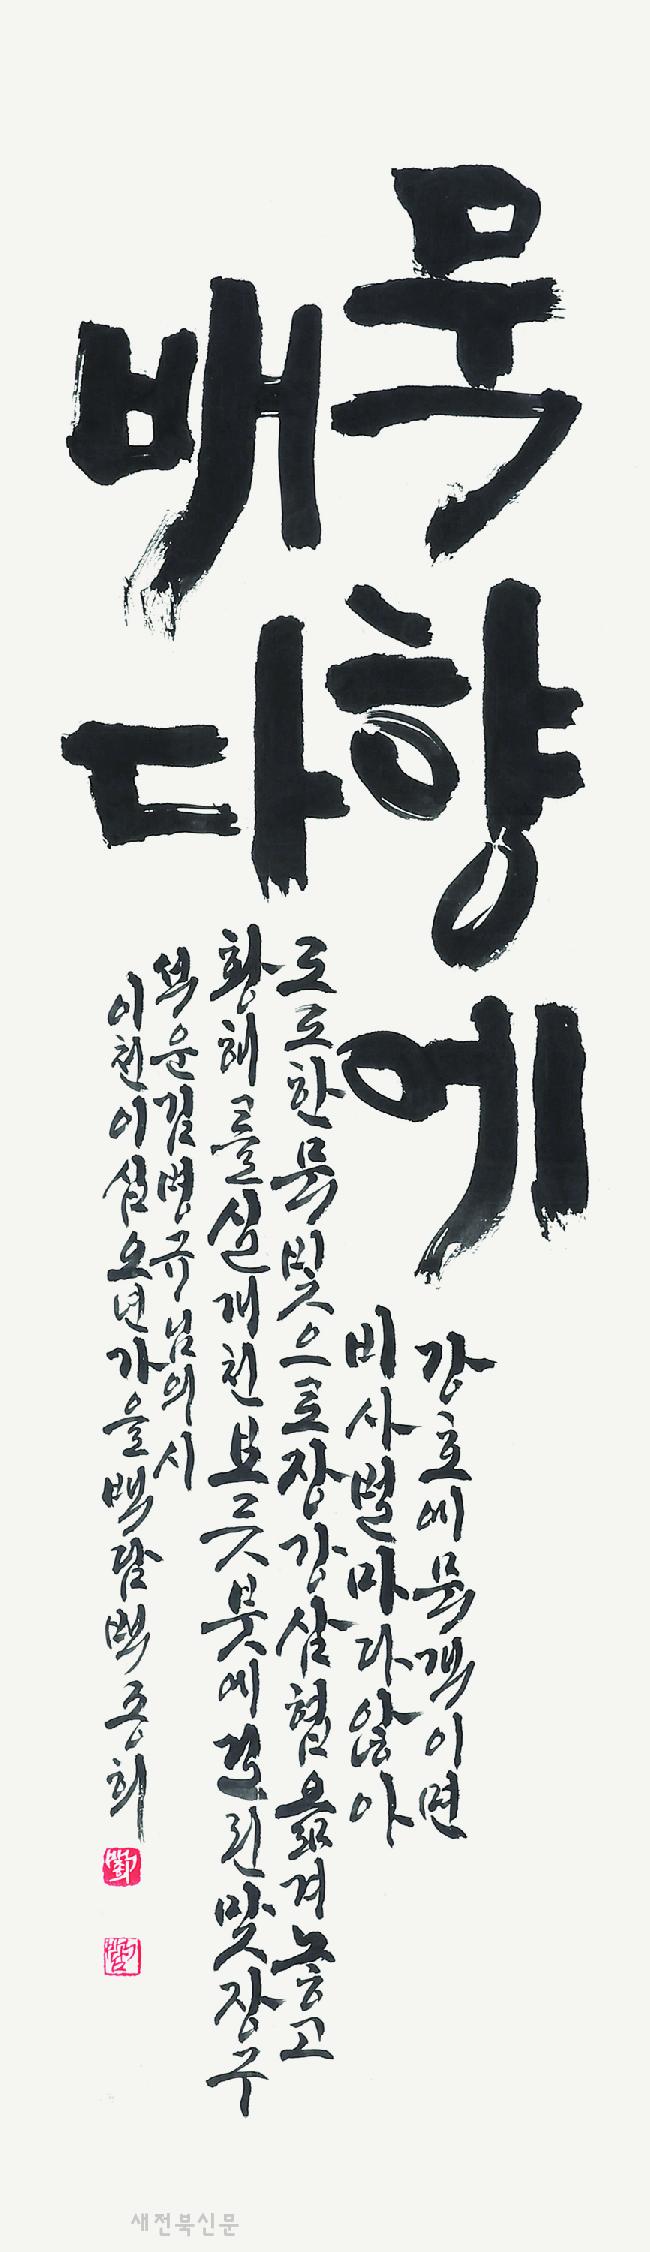 묵향에
배다
강호에묵객이면
비사벌마다않아
도도한묵빛으로장강삼협옮겨놓고
황해를실개천보듯붓에걸린맞장구
석운김병규님의시
이천이십오년가을백담백종희
새전북신문